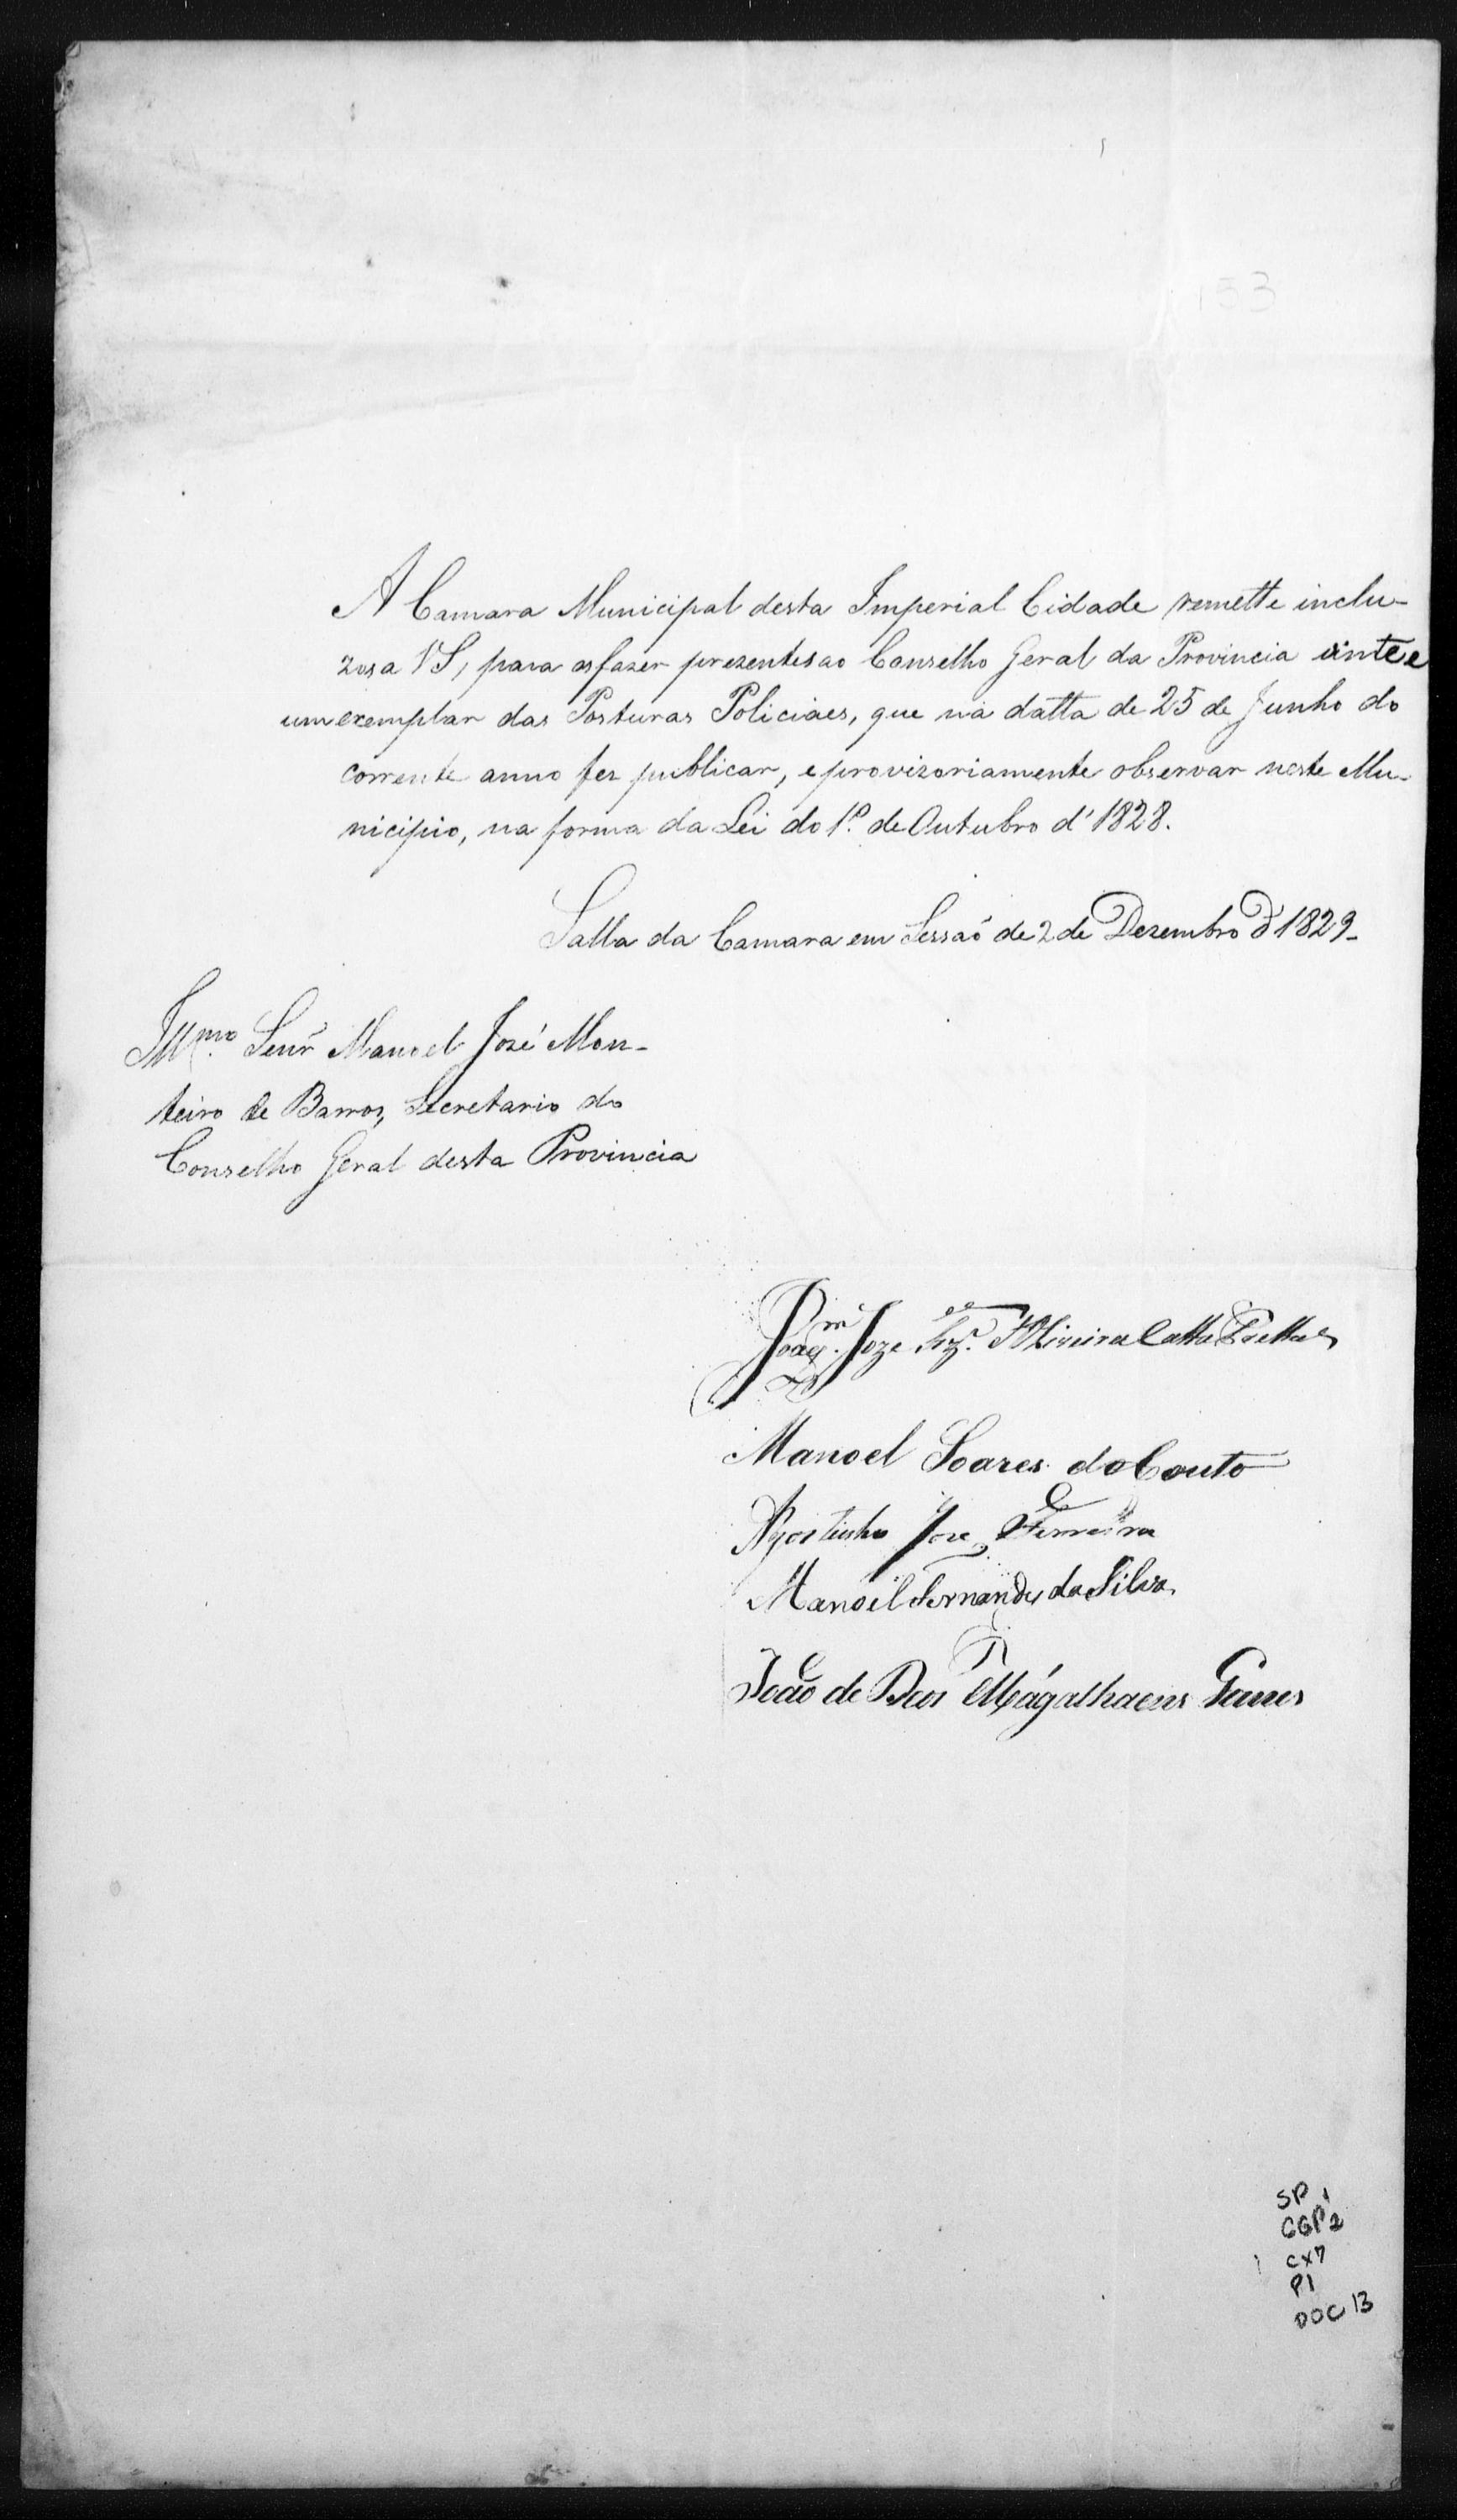 153
A Camara Municipal desta Imperial Cidade remette inclu-
zos a VS, para os fazer prezentes ao Conselho Geral da Provincia vinte e
um exemplar das Posturas Policiaes, que na datta de 25 de Junho do
corrente anno fez publicar, e provizoriamente observar neste Mu-
nicipio, na forma da Lei do 1º. de Outubro d'1828.
Salla da Camara em Sessaõ de 2 de Dezembro d'1829-
Illmo. Senr Manoel José Mon-
teiro de Barros, Secretario do
Conselho Geral desta Provincia
Joaqm. Joze d'Oliveira Catta Pretta
Manoel Soares do Couto
Agostinho Joze Ferreira
Manoel Fernandes da Silva
João de Deos Magalhaens Gomes
SP 1
CGP 2
CX 7
P1
DOC 13